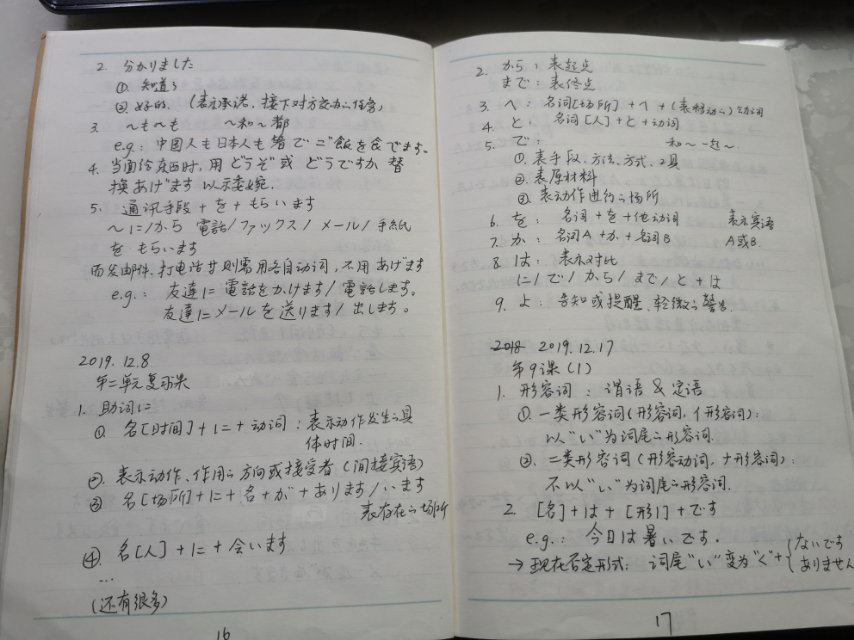 2. 分かりました
①. 知道了
②. 好的. (表示承诺, 接下对方交办的任务)
3. ～も～も ～和～都
e.g.: 中国人も日本人も箸でご飯を食べます。
4. 当面给东西时, 用 どうぞ 或 どうですか 替
换あげます 以示委婉.
5. 通讯手段 + を + もらいます
～に/から 電話/ファックス/メール/手紙
を もらいます
而发邮件、打电话等则需用各自动词, 不用 あげます
e.g.: 友達に 電話をかけます/電話します。
友達にメールを送ります/出します。
2019.12.8
第二单元复习课
1. 助词に
①. 名[时间]+に+动词: 表示动作发生的具
体时间.
②. 表示动作、作用的方向或接受者(间接宾语)
③ 名[场所]+に+名+が+あります/います
表存在的场所
④. 名[人]+に+会います
...
(还有很多)
16
2. から: 表起点
まで: 表终点
3. へ: 名词[场所]+へ+(表移动的)动词
4. と: 名词[人]+と+动词
5. で: 和～一起～
①. 表手段、方法、方式、工具
②. 表原材料
③. 表动作进行的场所
6. を: 名词+を+他动词 表示宾语
7. か: 名词A+か+名词B A或B.
8. は: 表示对比
に/で/から/まで/と+は
9. よ: 告知或提醒、轻微的警告.
2018 2019.12.17
第9课(1)
1. 形容词: 谓语&定语
①. 一类形容词(形容词, イ形容词):
以"い"为词尾的形容词.
②. 二类形容词(形容动词, ナ形容词):
不以"い"为词尾的形容词.
2. [名]+は+[形1]+です
e.g.: 今日は暑いです。
→ 现在否定形式: 词尾"い"变为"く"+{ないです
ありません
17